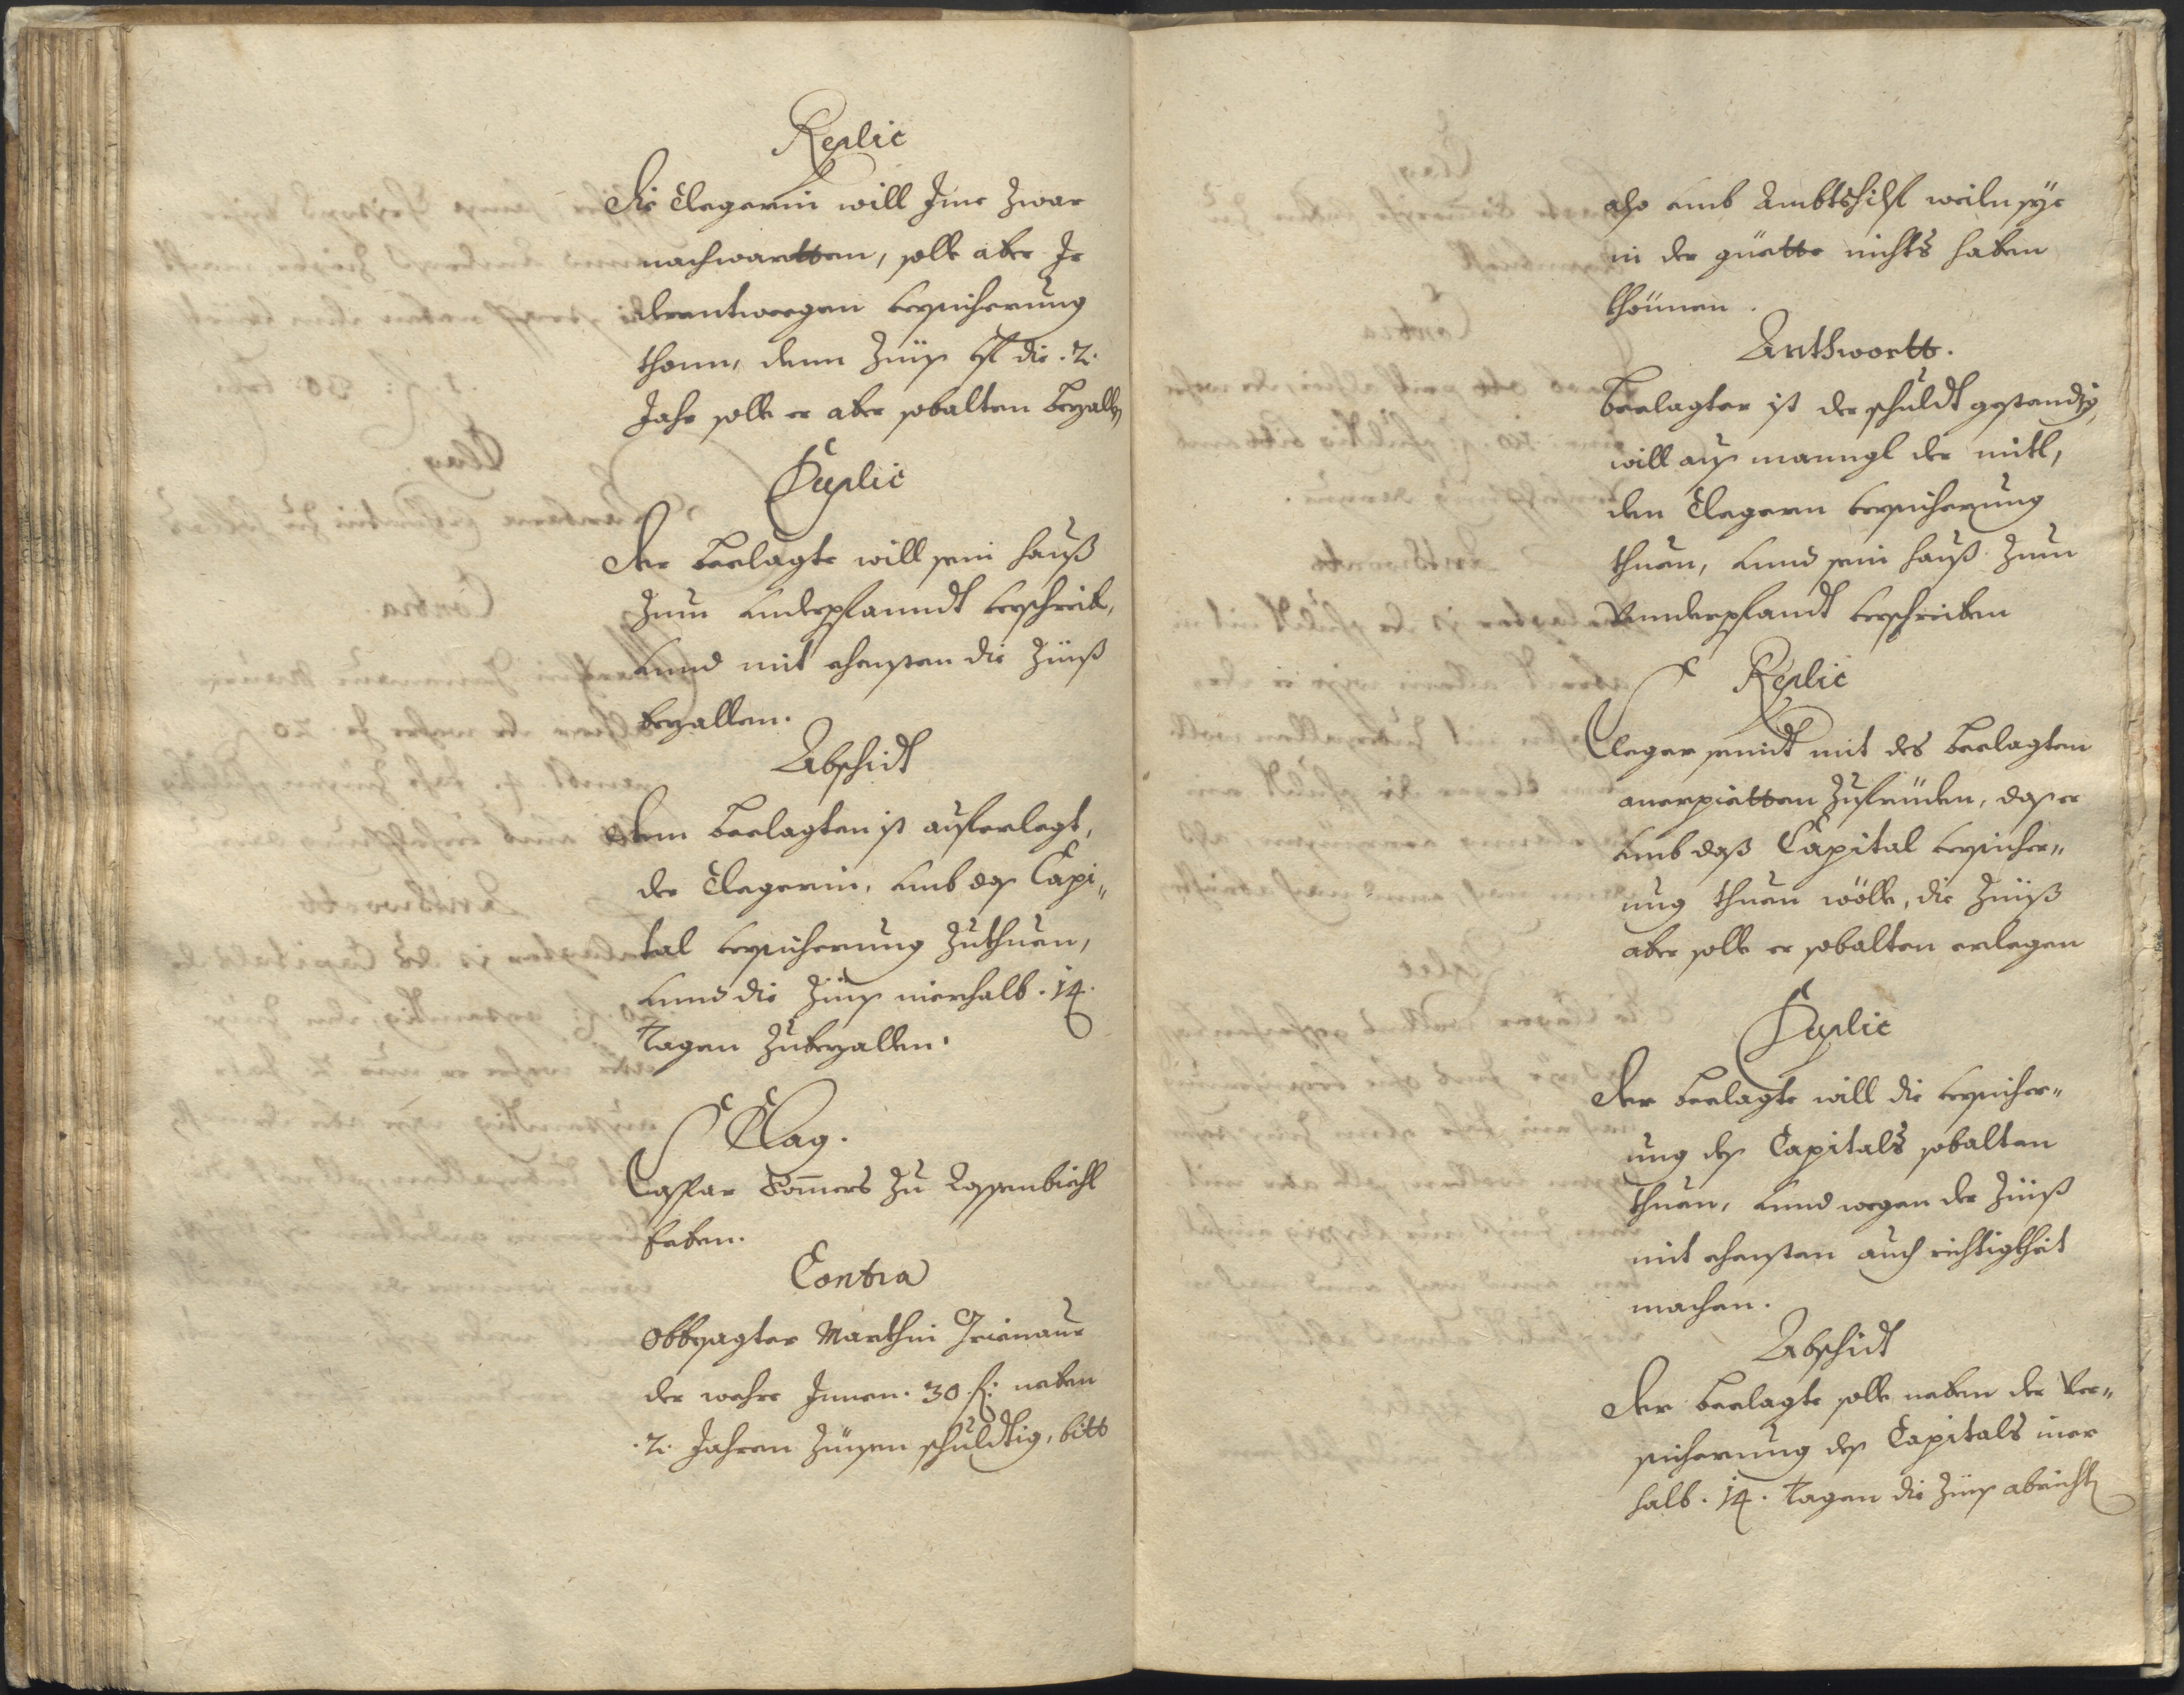 Replic
Die Clegerin will Jme zwar
nachwartten, solle aber Jr
derentwegen versicherung
thonn, denn Zünß vf die .2.
Jahr solle er aber sobalten bezalln
Duplic
Der beclagte will sein hauß
zum vnderpfanndt verschreib,
vnnd mit ehensten die Zünß
bezallen.
Abschidt
Dem beclagten ist auferlegt,
der Clegerin, vmb das Capi„
tal versicherung zuthuen,
vnnd die Zünß inerhalb .14.
Tagen zubezallen.
Clag.
Caspar Sommers zu Rossenbichl
Erben.
Contra
Obbesagter Marthin
der wehre Jnnen. 30 f: neben
.2. Jahren Zünsen schuldtig, bitt
also vmb Ambtshilf weiln sye
in der güette nichts haben
khönnen.
Anthwortt.
Beclagter ist der schuldt gestendig,
will auß manngl der mitl,
den Clegern versicherung
thuen, vnnd sein hauß zum
Vnnderpfandt verschreiben
Replic
Cleger seindt mit des beclagten
anerpietten zufriden, das er
vmb daß Capital versicher„
ung thuen wölle, die Zünß
aber solle er sobalten erlegen
Duplic
Der beclagte will die versicher„
ung des Capitals sobalten
thuen, vnnd wegen der Zünß
mit ehensten auch richtigkheit
machen.
Abschidt
Der beclagte solle neben der Ver„
sicherung des Capitals iner
halb .14. Tagen die Zünß abricht